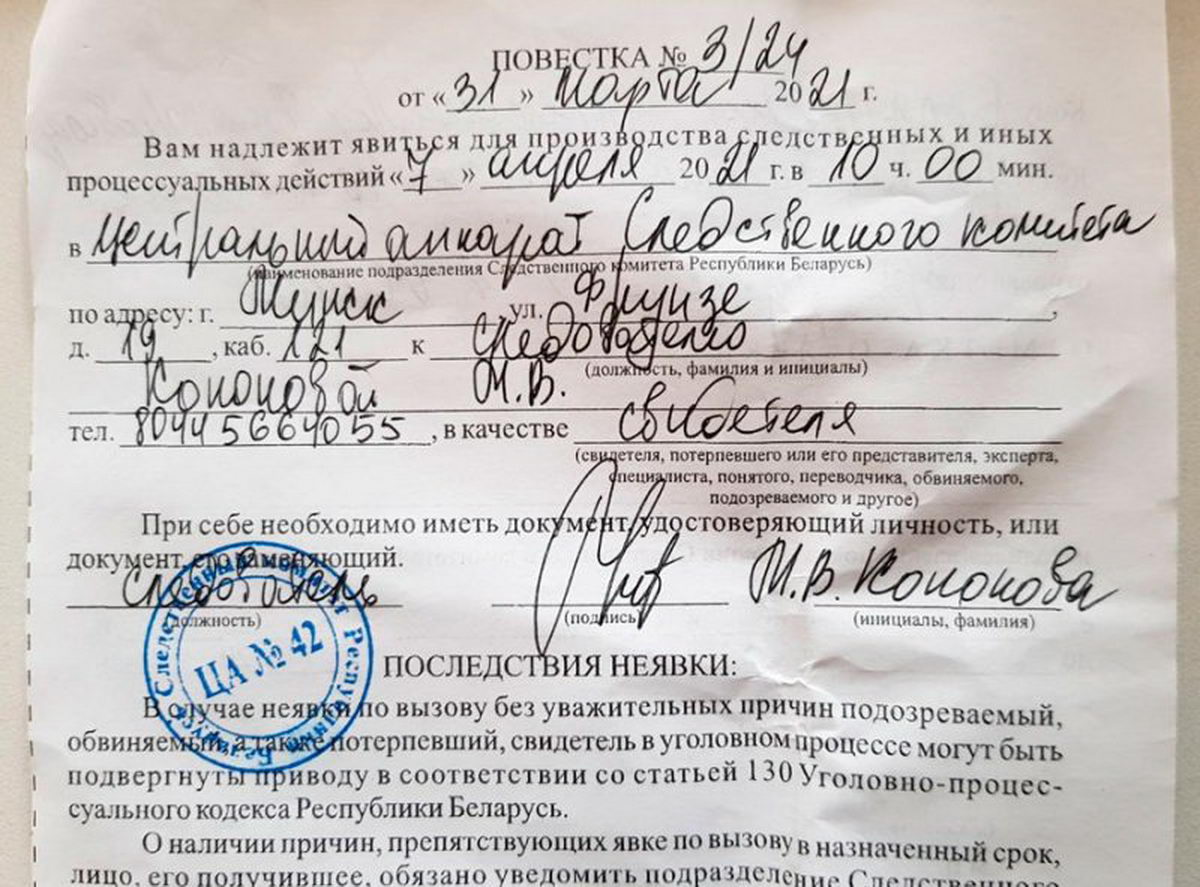 ПОВЕСТКА № 3/24
от «31» марта 2021 г.
Вам надлежит явиться для производства следственных и иных
процессуальных действий «7» апреля 2021 г. в 10 ч. 00 мин.
в центральный аппарат Следственного комитета
(наименование подразделения Следственного комитета Республики Беларусь)
по адресу: г. Минск ул. Фрунзе,
д. 19, каб. 121 к следователю
(должность, фамилия и инициалы)
Кононовой М.В.
тел. 80445664055, в качестве свидетеля
(свидетеля, потерпевшего или его представителя, эксперта,
специалиста, понятого, переводчика, обвиняемого,
подозреваемого и другое)
При себе необходимо иметь документ, удостоверяющий личность, или
документ, его заменяющий.
следователь М.В. Кононова
(должность) (подпись) (инициалы, фамилия)
Следственный комитет Республики Беларусь
ЦА № 42
ПОСЛЕДСТВИЯ НЕЯВКИ:
В случае неявки по вызову без уважительных причин подозреваемый,
обвиняемый, а также потерпевший, свидетель в уголовном процессе могут быть
подвергнуты приводу в соответствии со статьей 130 Уголовно-процес-
суального кодекса Республики Беларусь.
О наличии причин, препятствующих явке по вызову в назначенный срок,
лицо, его получившее, обязано уведомить подразделение Следственного